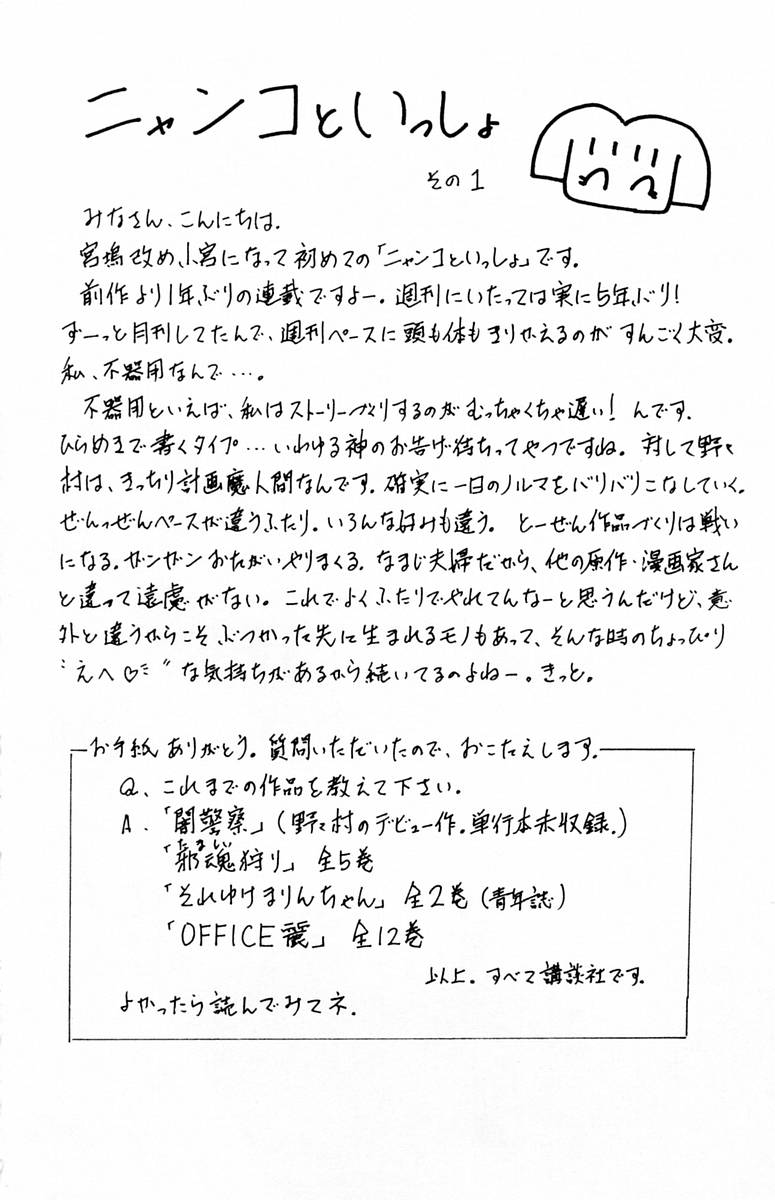 ニャンコといっしょ
その1
みなさん、こんにちは.
宮塢改め、小宮になって初めての「ニャンコといっしょ」です。
前作より1年ぶりの連載ですよー。週刊にいたっては実に5年ぶり!
ずーっと月刊してたんで、週刊ペースに頭も体もきりかえるのが すんごく大変。
私、不器用なんで…。
不器用といえば、私はストーリーづくりするのが むっちゃくちゃ遅い! んです.
ひらめきで書くタイプ…いわゆる神のお告げ待ちってやつですね。対して野々
村は、きっちり計画魔人間なんです.確実に一日のノルマをバリバリこなしていく。
ぜんっぜんペースが違うふたり。いろんな好みも違う。 とーぜん作品づくりは戦い
になる.ガンガン おたがいやりまくる。なまじ夫婦だから、他の原作・漫画家さん
と違って遠慮がない。これでよくふたりでやれてんなーと思うんだけど、意
外と違うからこそ ぶつかった先に生まれるモノもあって、そんな時のちょっぴり
〝えへ♡〟な気持ちがあるから続いてるのよねー。きっと。
お手紙 ありがとう。質問いただいたので、おこたえします.
Q、これまでの作品を教えて下さい.
A.「闇警察」(野々村のデビュー作.単行本未収録.)
「邪魂狩り」全5巻
たまい
「それゆけまりんちゃん」全2巻(青年誌)
「OFFICE麗」全12巻
以上。すべて講談社です.
よかったら読んでみてネ.